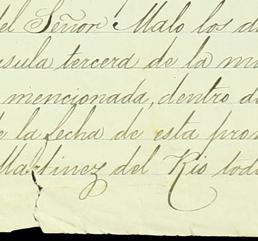 del Señor Malo los d
usula tercera de la m
mencionada, dentro d
e la fecha de esta pro
Martinez del Rio tod